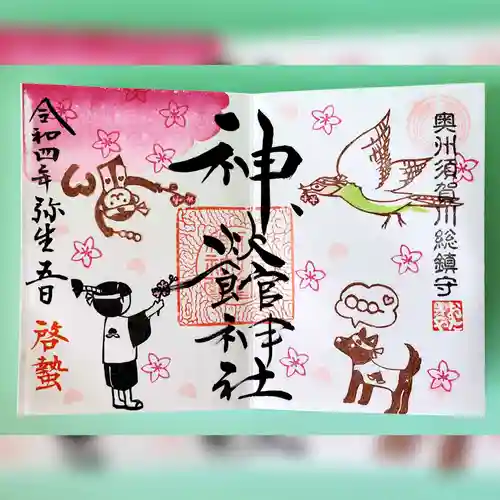 奥州須賀川総鎮守
神炊館神社
令和四年弥生五日
啓蟄